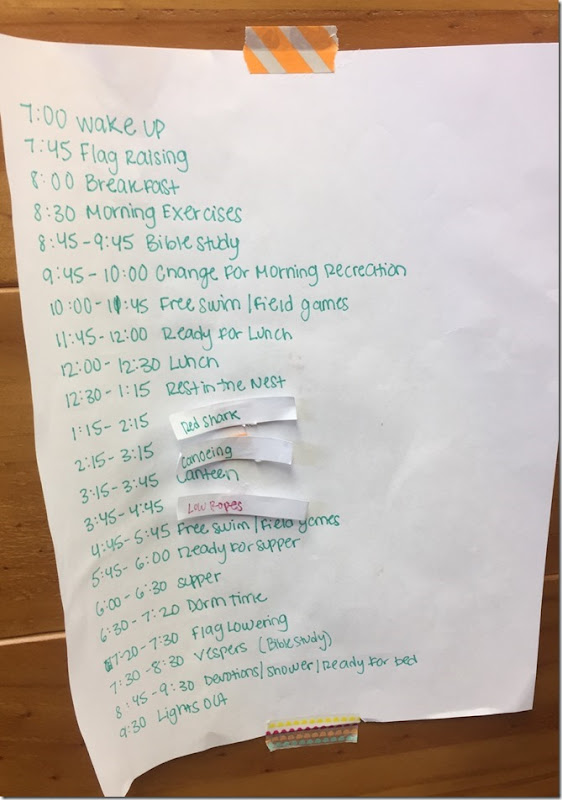 7:00 Wake UP
7:45 Flag Raising
8:00 Breakfast
8:30 Morning Exercises
8:45-9:45 Bible Study
9:45-10:00 Change For Morning Recreation
10:00-11:45 Free Swim/Field games
11:45-12:00 Ready for Lunch
12:00-12:30 Lunch
12:30-1:15 Rest in the Nest
1:15-2:15 Red Shark
2:15-3:15 Canoeing
3:15-3:45 Canteen
3:45-4:45 Low Ropes
4:45-5:45 Free Swim/Field games
5:45-6:00 Ready For Supper
6:00-6:30 Supper
6:30-7:20 Dorm Time
7:20-7:30 Flag Lowering
7:30-8:30 Vespers (Bible Study)
8:45-9:30 Devotions/Shower/Ready for bed
9:30 Lights Out